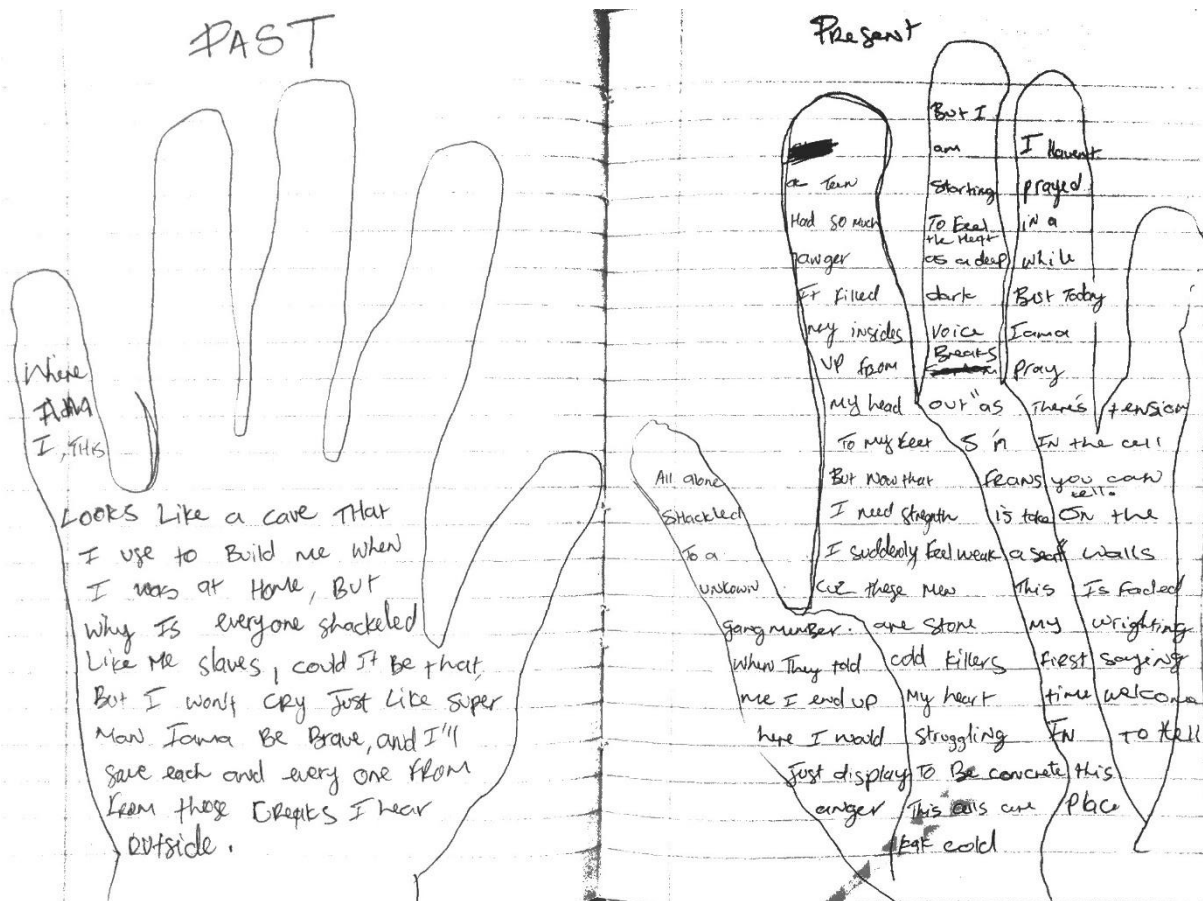 PAST
Where
I, THIS
LOOKS Like a cave THAT
I use to Build me when
I was at Home, But
why Is everyone shackeled
Like Me slaves, could It Be that,
But I won't cry Just Like super
Man Iama Be Brave, and I'll
save each and every one FROM
FROM these Creaks I hear
outside.
Present
All alone
SHackled
To a
unkown
gang member.
When They told
me I end up
here I would
Just display
anger
a Teen
Had so much
anger
It Filled
my insides
UP FROM
My head
To my feet
But Now that
I need
I suddenly feel weak
cuz these men
are stone
cold killers
My heart
struggling
To Be concrete
This cells are
cold
But I
am
starting
To Feel
the Heat
as a deep
dark
voice
Breaks
out "as
5 'n
FRANS
is take
a seat"
This
my
First
time
IN
this
Place
I Havent
prayed
in a
while
But Today
Iama
pray
There's tension
IN the cell
you can
tell.
On the
walls
Is Faded
wrighting
saying
welcome
To Hell